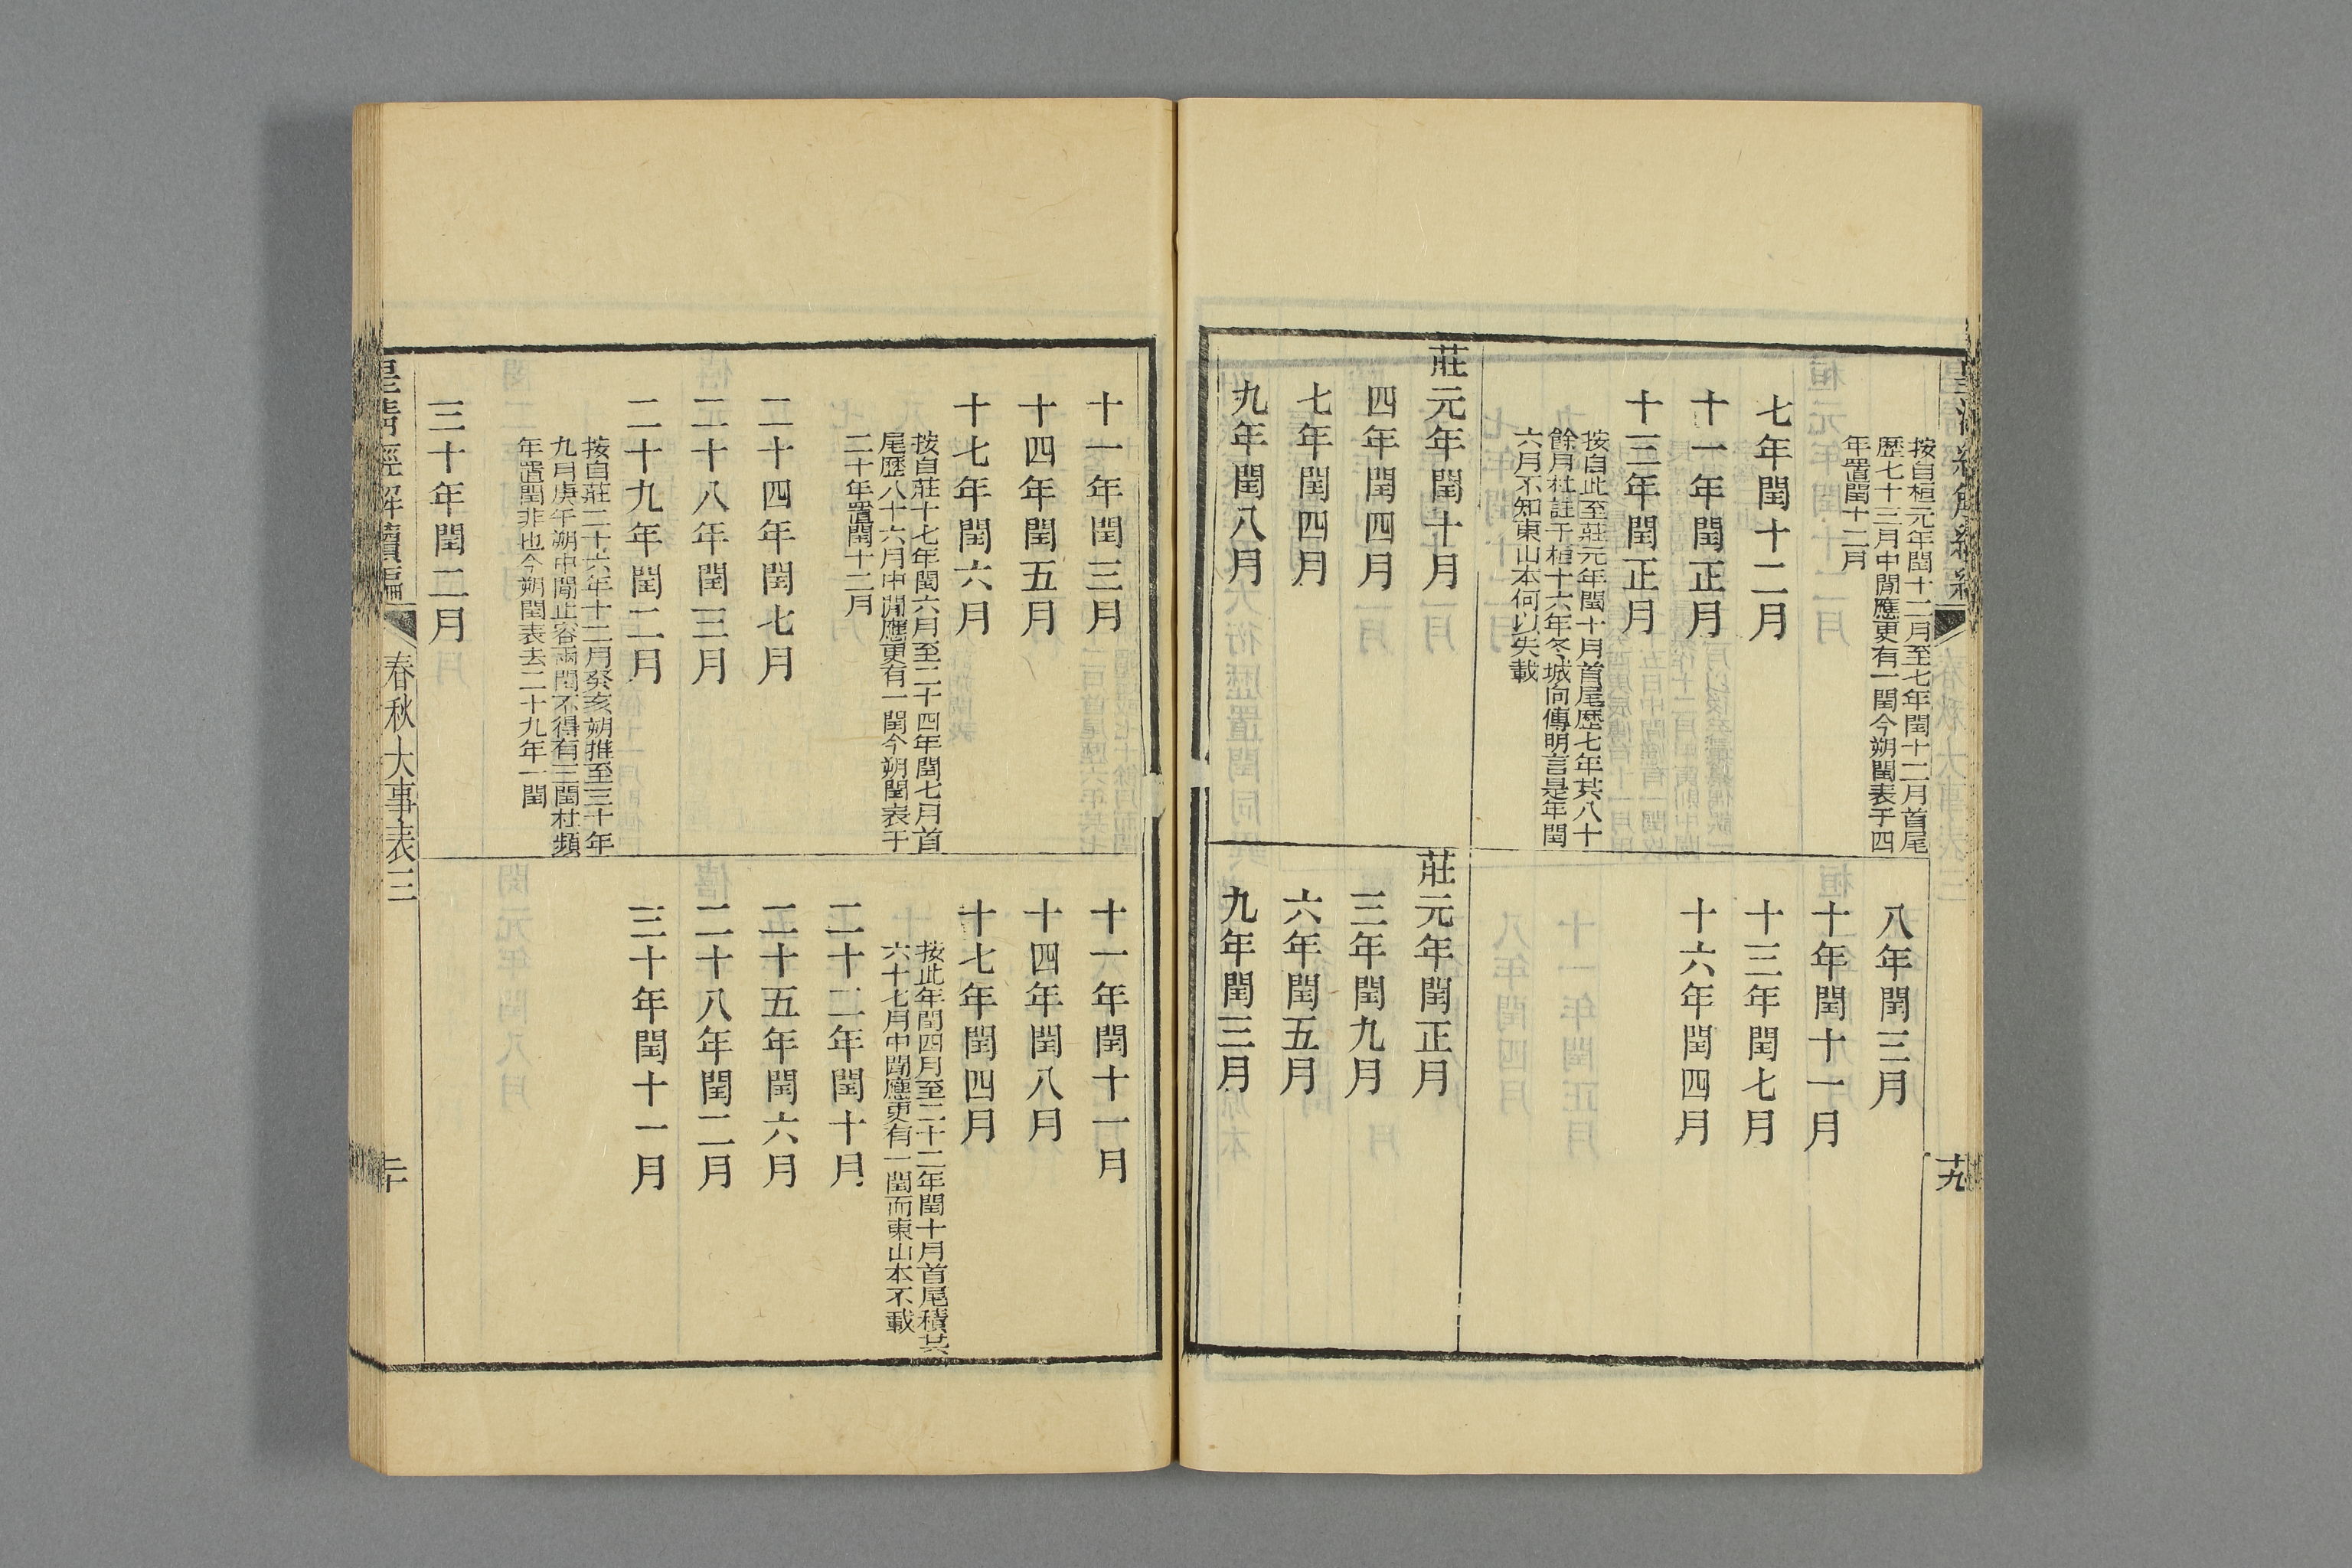 按自桓元年閏十二月至七年閏十二月首尾
歷七十三月中閒應更有一閏今朔閏表于四
年置閏十二月
七年閏十二月
十一年閏正月
十三年閏正月
按自此至莊元年閏十月首尾歷七年其八十
餘月杜註于桓十六年冬城向傳明言是年閏
六月不知東山本何以失載
八年閏三月
十年閏十一月
十三年閏七月
十六年閏四月
莊元年閏十月
四年閏四月
七年閏四月
九年閏八月
莊元年閏正月
三年閏九月
六年閏五月
九年閏三月
十九
十一年閏三月
十四年閏五月
十七年閏六月
按自莊十七年閏六月至二十四年閏七月首
尾歷八十六月中閒應更有一閏今朔閏表于
二十年置閏十二月
二十四年閏七月
二十八年閏三月
二十九年閏二月
按自莊二十六年十二月癸亥朔推至三十年
九月庚午朔中閒止容兩閏不得有三閏杜頻
年置閏非也今朔閏表去二十九年一閏
三十年閏二月
十一年閏十一月
十四年閏八月
十七年閏四月
按此年閏四月至二十二年閏十月首尾積共
六十七月中閒應更有一閏而東山本不載
二十二年閏十月
二十五年閏六月
二十八年閏二月
三十年閏十一月
皇清經解續編
春秋大事表三
二十